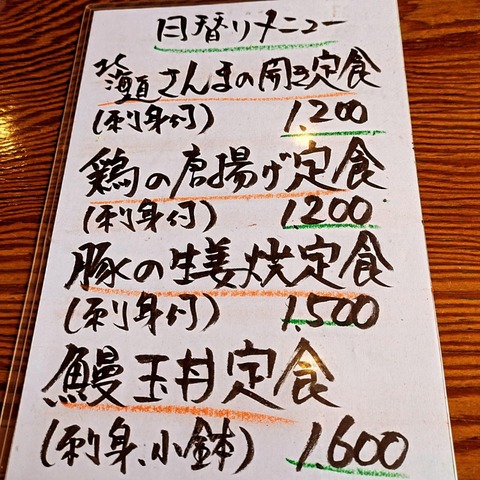 日替りメニュー
北海道さんまの開き定食
(刺身付) 1,200
鶏の唐揚げ定食
(刺身付) 1,200
豚の生姜焼定食
(刺身付) 1,500
鰻玉丼定食
(刺身、小鉢) 1,600